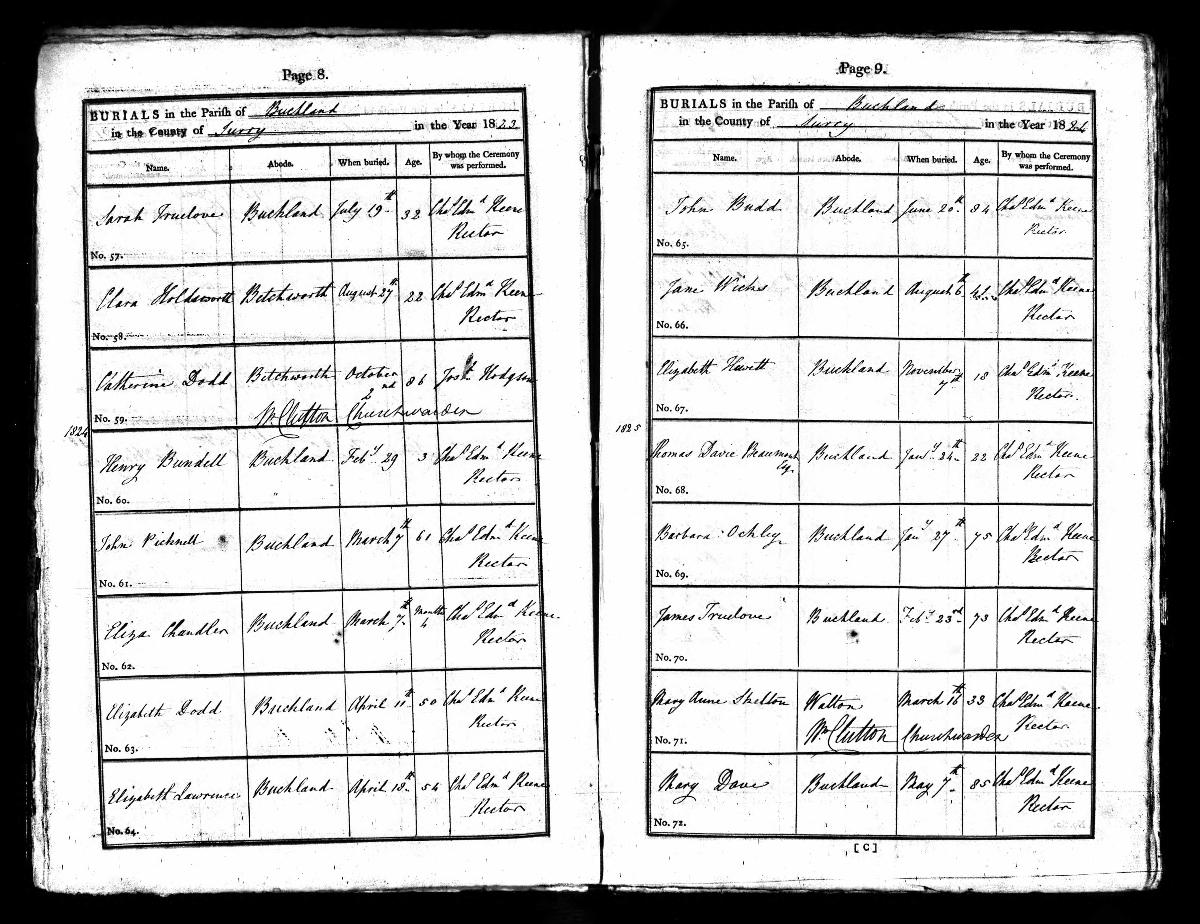 Page 8.
BURIALS in the Parish of Buckland
in the County of Surry in the Year 1823
Name. Abode. When buried. Age. By whom the Ceremony was performed.
Sarah Truelove Buckland July 19th 32 Chas Edmd Keene
Rector
No. 57.
Clara Holdsworth Betchworth August 27th 22 Chas Edmd Keene
Rector
No. 58.
Catherine Dodd Betchworth October 2nd 86 Josh Hodgson
No. 59. Wm Clutton Churchwarden
1824
Henry Bundell Buckland Feby 29 3 Chas Edmd Keene
Rector
No. 60.
John Picknell Buckland March 7th 61 Chas Edmd Keene
Rector
No. 61.
Eliza Chandler Buckland March 7th Months 4 Chas Edmd Keene
Rector
No. 62.
Elizabeth Dodd Buckland April 11th 50 Chas Edmd Keene
Rector
No. 63.
Elizabeth Lawrence Buckland April 18th 54 Chas Edmd Keene
Rector
No. 64.
Page 9.
BURIALS in the Parish of Buckland
in the County of Surry in the Year 1824
Name. Abode. When buried. Age. By whom the Ceremony was performed.
John Budd Buckland June 20th 84 Chas Edmd Keene
Rector
No. 65.
Jane Wicks Buckland August 6th Chas Edmd Keene
Rector
No. 66.
Elizabeth Hewett Buckland November 7th 18 Chas Edmd Keene
Rector.
No. 67.
1825
Thomas Davie Beaumont Esq. Buckland Jany 24th 22 Chas Edmd Keene
Rector
No. 68.
Barbara Ockley Buckland Jany 27th 75 Chas Edmd Keene
Rector
No. 69.
James Truelove Buckland Feby 23rd 73 Chas Edmd Keene
Rector
No. 70.
Mary Anne Skelton Walton March 16th 33 Chas Edmd Keene
Rector
No. 71. Wm Clutton Churchwarden
Mary Dave Buckland May 7th 85 Chas Edmd Keene
Rector
No. 72.
[ C ]